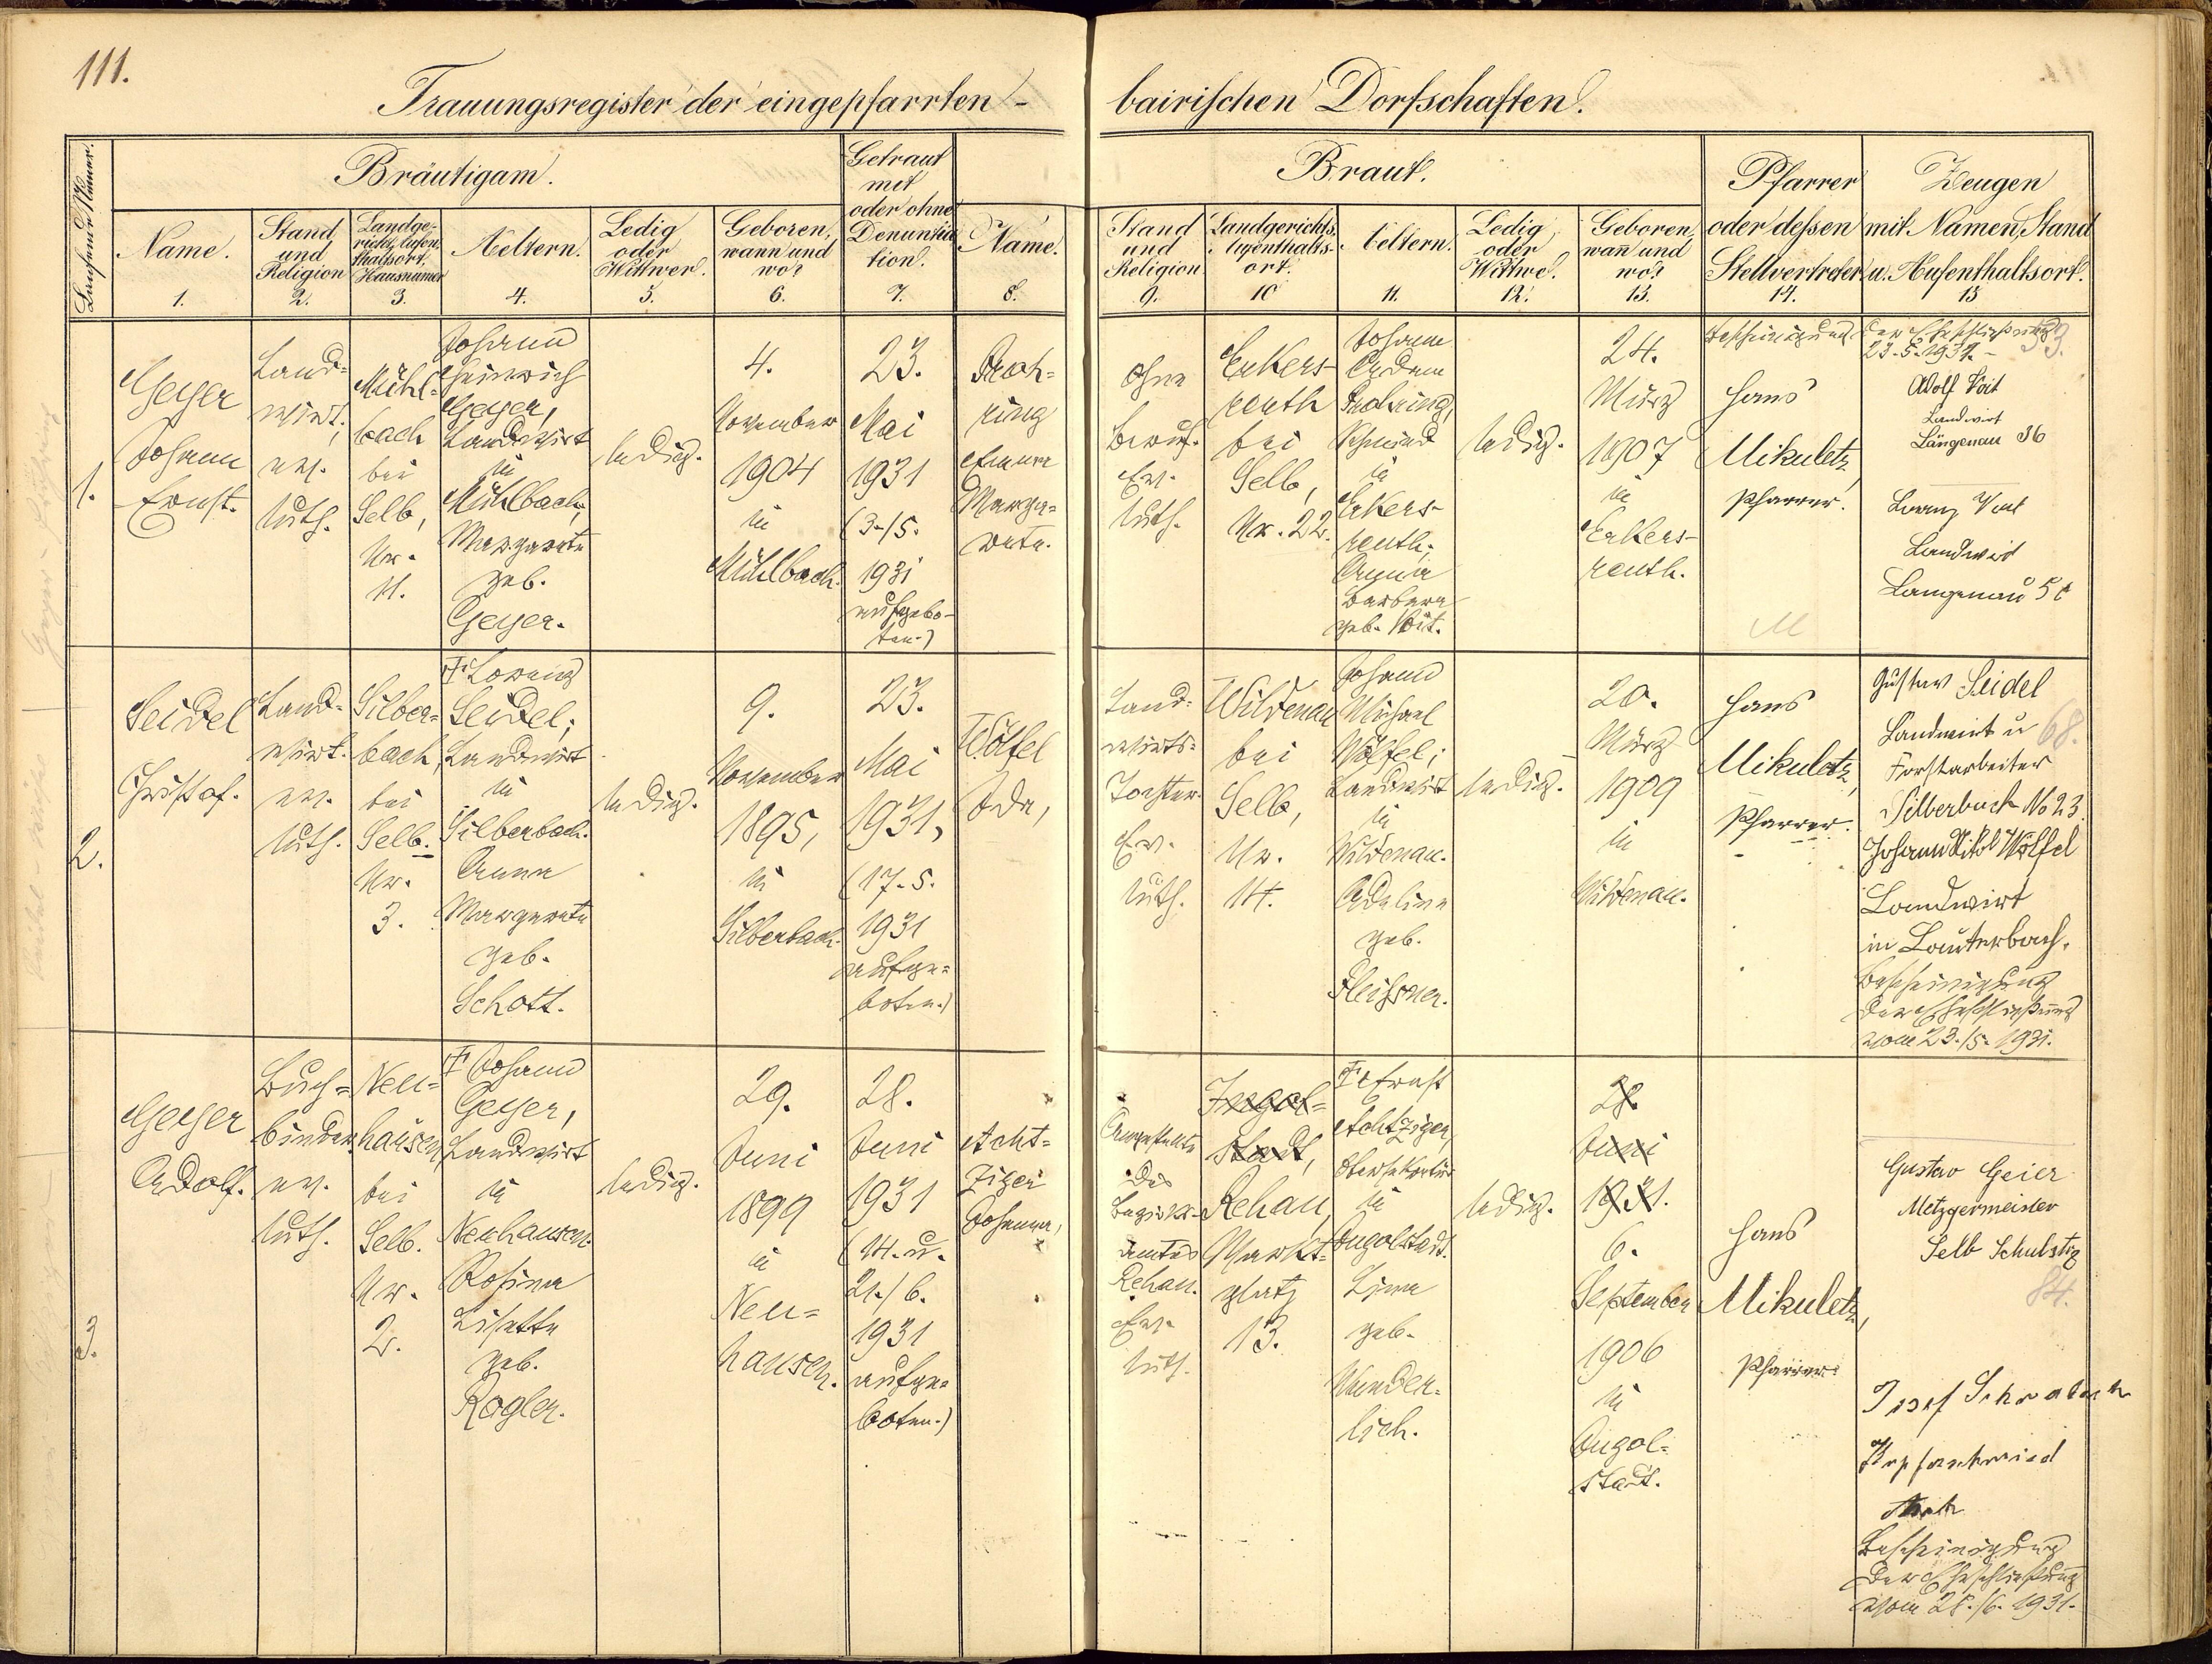 111.
Trauungsregister der eingepfarrten-
bairischen Dorfschaften.
Laufende Numer.
Bräutigam.
Getraut
mit
oder ohne
Denuntia
tion.
7.
Name.
1.
Stand
und
Religion
2.
Landge-
richt, Aufen-
thaltsort,
Hausnumer
3.
Aeltern.
4.
Ledig
oder
Wittwer.
5.
Geboren,
wann und
wo?
6.
Name.
8.
Braut.
Stand
und
Religion
9.
Landgerichts,
Aufenthalts-
ort.
10
Aeltern.
11.
Ledig
oder
Wittwe.
12.
Geboren
wañ und
wo?
13.
Pfarrer
oder deßen
Stellvertreter
14.
Zeugen
mit Namen, Stand
u. Aufenthaltsort.
15
1.
Geyer
Johann
Ernst.
Land-
wirt,
ev.
luth.
Mühl-
bach
bei
Selb,
Nr.
11.
Johann
Heinrich
Geyer,
Landwirt
in
Mühlbach,
Margareta
geb.
Geyer.
ledig.
4.
November
1904
in
Mühlbach.
23.
Mai
1931
(3./5.
1931
aufgebo-
ten.)
Proh-
ring
Emma
Marga-
reta.
Ohne
Beruf.
Ev.
luth.
Erkers-
reuth
bei
Selb,
Nr. 22.
Johann
Adam
Prohring,
Schmied
in
Erkers-
reuth;
Anna
Barbara
geb. Voit.
ledig.
24.
März
1907
in
Erkers-
reuth.
Bescheinigung der Eheschließung
23.5.1931.-
53.
Hans
Mikuletz,
Pfarrer.
Adolf Voit
Landwirt
Längenau 36
Lorenz Voit
Landwirt
Langenau
2.
Seidel
Christof.
Land-
wirt.
ev.
luth.
Silber-
bach,
bei
Selb.
Nr.
3.
† Lorenz
Seidel,
Landwirt
in
Silberbach.
Anna
Margareta
geb.
Schott.
ledig.
9.
November
1895,
in
Silberbach.
23.
Mai
1931,
(17.5.
1931
aufge-
boten.)
Wölfel
Ida,
Land-
wirts-
Tochter.
Ev.
luth.
Wildenau
bei
Selb,
Nr.
14.
Johann
Michael
Wölfel;
Landwirt
in
Wildenau.
Adeline
geb.
Fleißner.
ledig.
20.
März
1909
in
Wildenau.
Hans
Mikuletz,
Pfarrer.
Gustav Seidel
Landwirt u
68.
Forstarbeiter
Silberbach No 23.
Johann Nikol Wölfel
Landwirt
in Lauterbach.
Bescheinigung
der Eheschließung
vom 23./5. 1931.
3.
Geyer
Adolf.
Buch-
binder.
ev.
luth.
Neu-
hausen
bei
Selb.
Nr.
2.
† Johann
Geyer,
Landwirt
in
Neuhausen.
Rosina
Lisette
geb.
Rogler.
ledig.
29.
Juni
1899
in
Neu-
hausen.
28.
Juni
1931
(14. u.
21./6.
1931
aufge-
boten.)
Acht-
ziger
Johanna,
Angestellte
des
Bezirks-
amtes
Rehau.
Ev.
luth.
Ingol-
stadt,
Rehau,
Markt-
platz
13.
† Ernst
Achtziger,
Obersekretär
in
Ingolstadt.
Lina
geb.
Wunder-
lich.
ledig.
28.
Juni
1931.
6.
September
1906
in
Ingol-
stadt.
Hans
Mikuletz,
Pfarrer.
Gustav Geier
Metzgermeister
Selb Schulstr
84.
Josef Schwabach
Bescheinigung
der Eheschließung
vom 28./6. 1931.